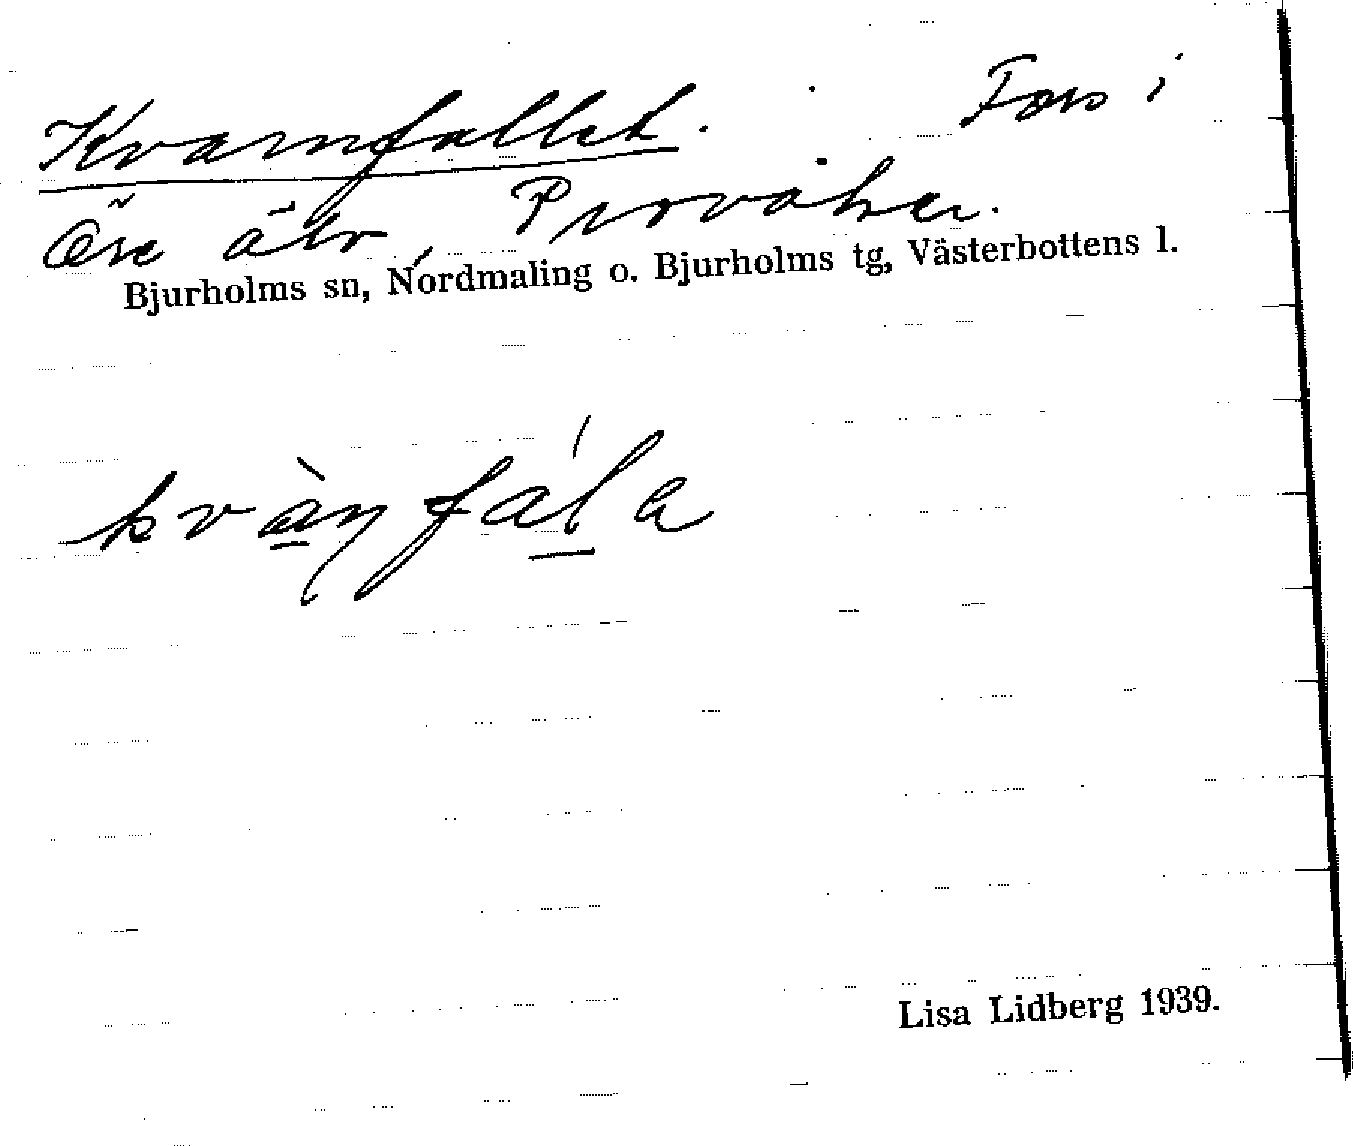 Kvarnfallet. Fors i
Öre älv, Provåker.
Bjurholms sn, Nordmaling o. Bjurholms tg, Västerbottens l.
Lisa Lidberg 1939.